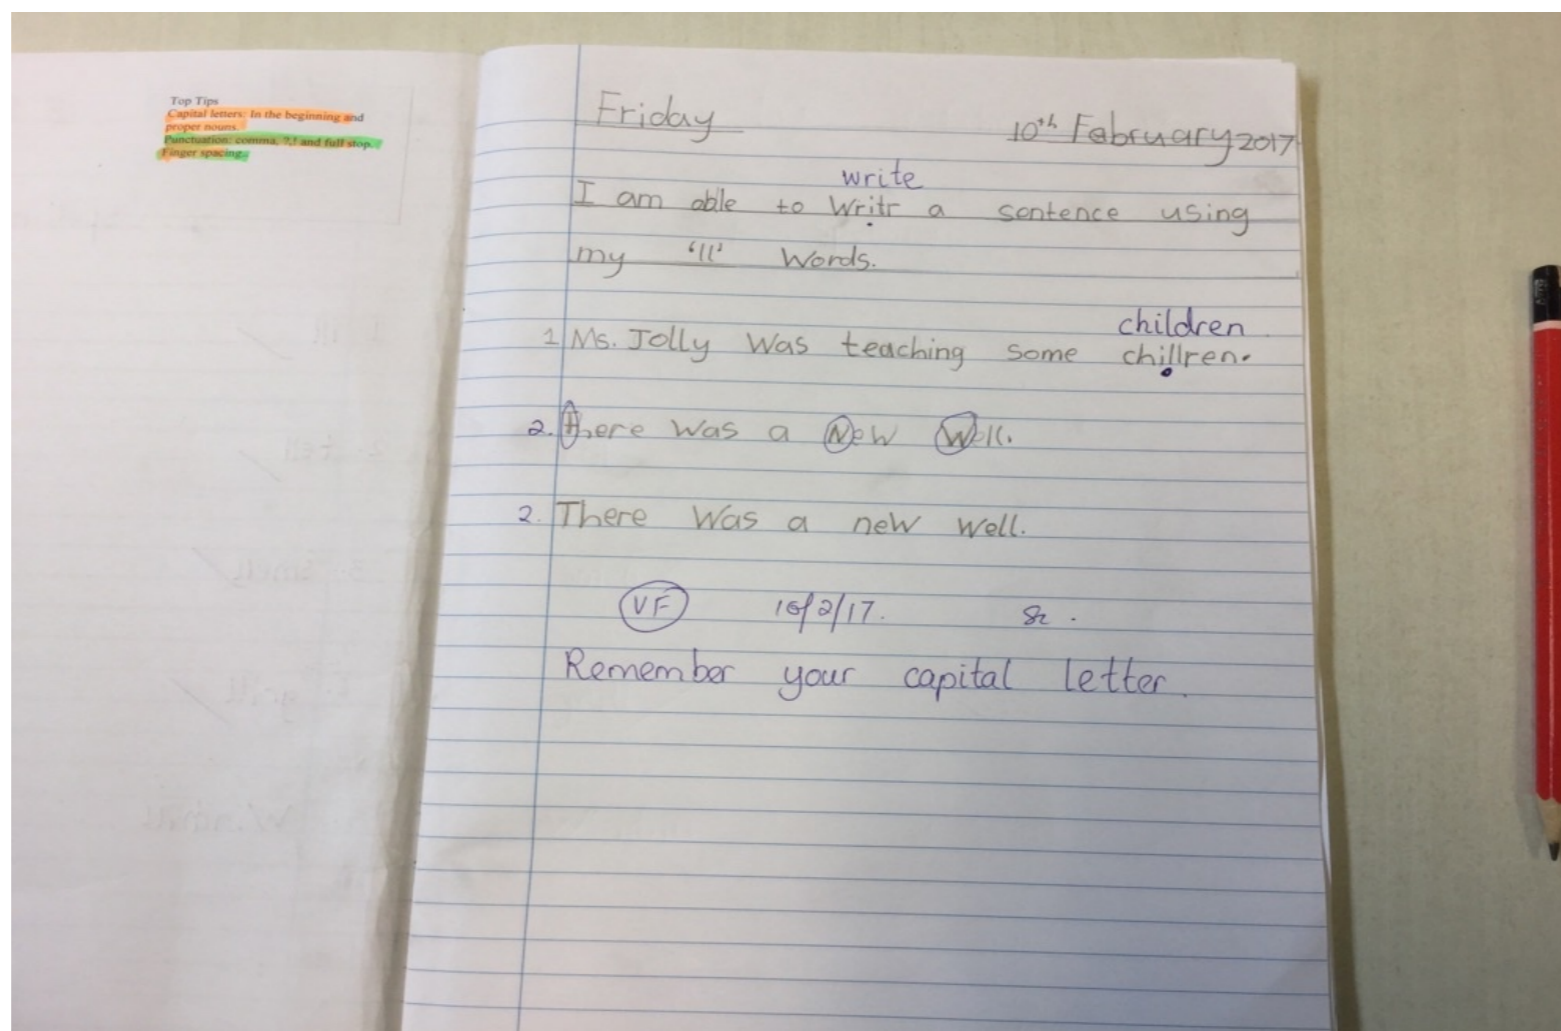 Top Tips
Capital letters: In the beginning and
proper nouns.
Punctuation: comma, ?,! and full stop.
Finger spacing.
Friday 10th February 2017
write
I am able to writr a sentence using
my 'll' words.
children
1 Ms. Jolly was teaching some chillren.
2. there was a New Well.
2. There was a new well.
VF 10/2/17.
Remember your capital letter.